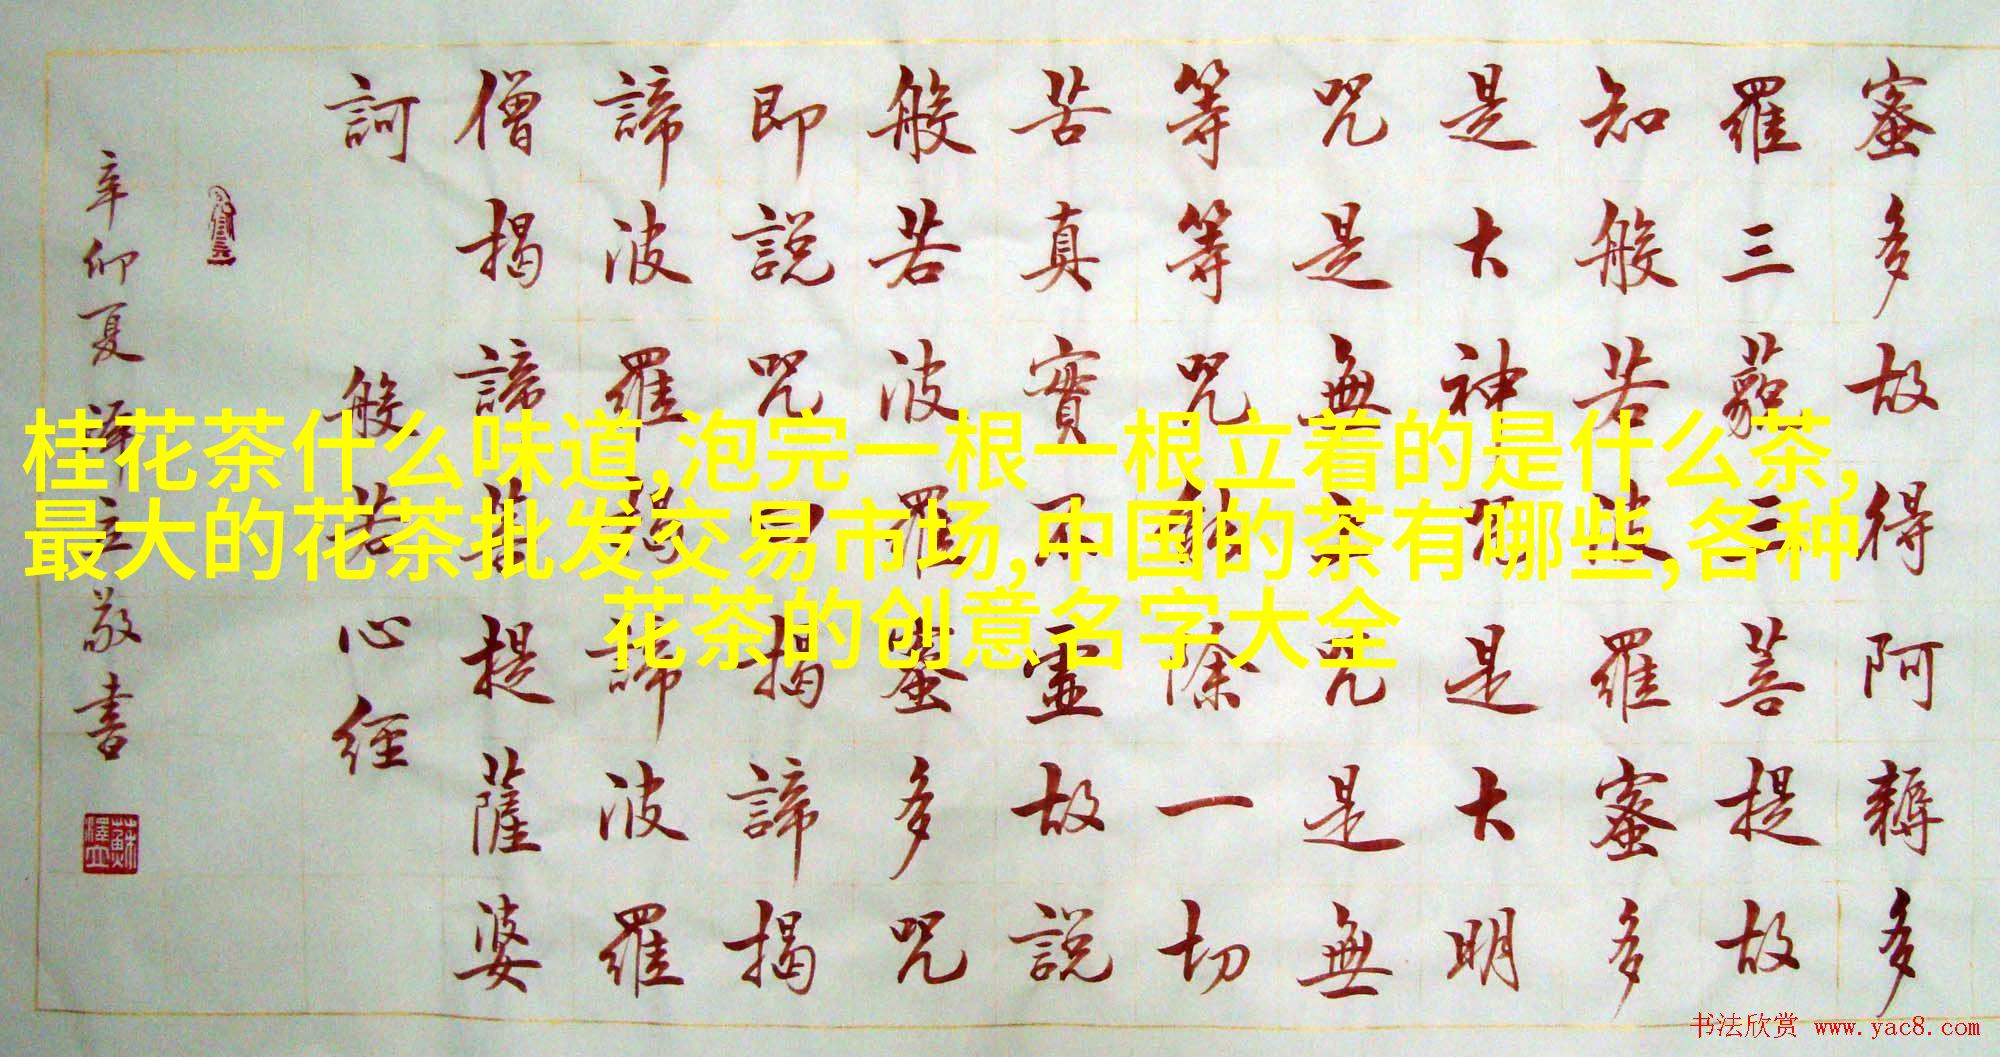 蜜多故得阿耨多
羅三藐三菩提故
知般若波羅蜜多
是大神咒是大明
咒是無上咒是無
等等咒能除一切
苦真實不虛故說
般若波羅蜜多咒
即說咒曰揭諦揭
諦波羅揭諦波羅
僧揭諦菩提薩婆
訶 般若心經
辛卯夏澤立敬書
桂花茶什么味道,泡完一根一根立着的是什么茶,
最大的花茶批发交易市场,中国的茶有哪些,各种
花茶的创意名字大全
书法欣赏 www.yac8.com